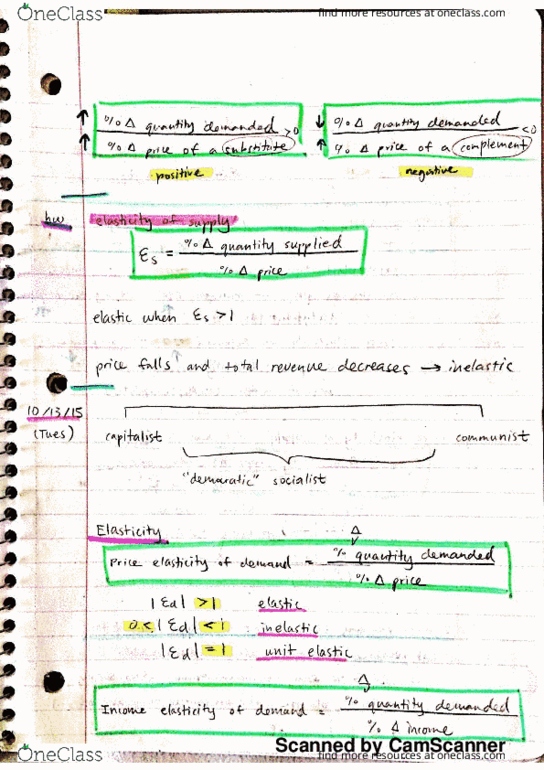 OneClass find more resources at oneclass.com
↑ % Δ quantity demanded > 0
↑ % Δ price of a substitute
positive
↓ % Δ quantity demanded < 0
↑ % Δ price of a complement
negative
hw elasticity of supply
Es = % Δ quantity supplied
% Δ price
elastic when Es > 1
price falls and total revenue decreases → inelastic
10/13/15
(Tues) capitalist communist
"demaratic" socialist
Elasticity
Δ
Price elasticity of demand = % quantity demanded
% Δ price
|Ed| > 1 elastic
0 < |Ed| < 1 inelastic
|Ed| = 1 unit elastic
Δ
Income elasticity of demand = % quantity demanded
% Δ income
Scanned by CamScanner
OneClass find more resources at oneclass.com